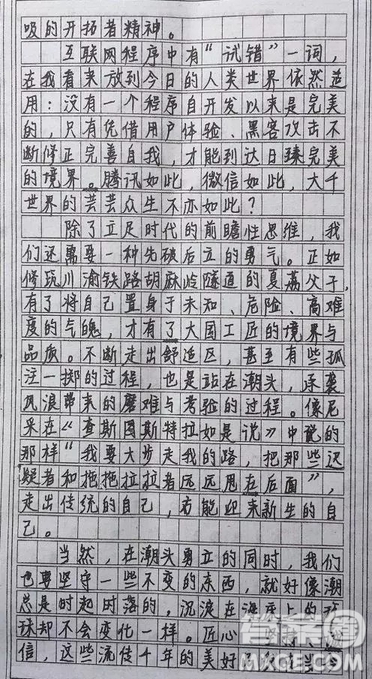 吸的开拓者精神。
互联网程序中有“试错”一词，
在我看来放到今日的人类世界依然适
用：没有一个程序自开发以来是完美
的，只有凭借用户体验、黑客攻击不
断修正完善自我，才能到达日臻完美
的境界。腾讯如此，微信如此，大千
世界的芸芸众生不亦如此？
除了立足时代的前瞻性思维，我
们还需要一种先破后立的勇气。正如
修筑川渝铁路胡麻岭隧道的夏荔父子，
有了将自己置身于未知、危险、高难
度的气魄，才有了大国工匠的境界与
品质。不断走出舒适区，甚至有些孤
注一掷的过程，也是站在潮头，承袭
风浪带来的磨难与考验的过程。像尼
采在《查斯图斯特拉如是说》中说的
那样“我要大步走我的路，把那些迟
疑者和拖拖拉拉者远远甩在后面”，
走出传统的自己，方能迎来新生的自
己。
当然，在潮头勇立的同时，我们
也要坚守一些不变的东西，就好像潮
总是时起时落的，沉淀在海底上的
珠却不会变化一样。匠心
信，这些流传千年的美好